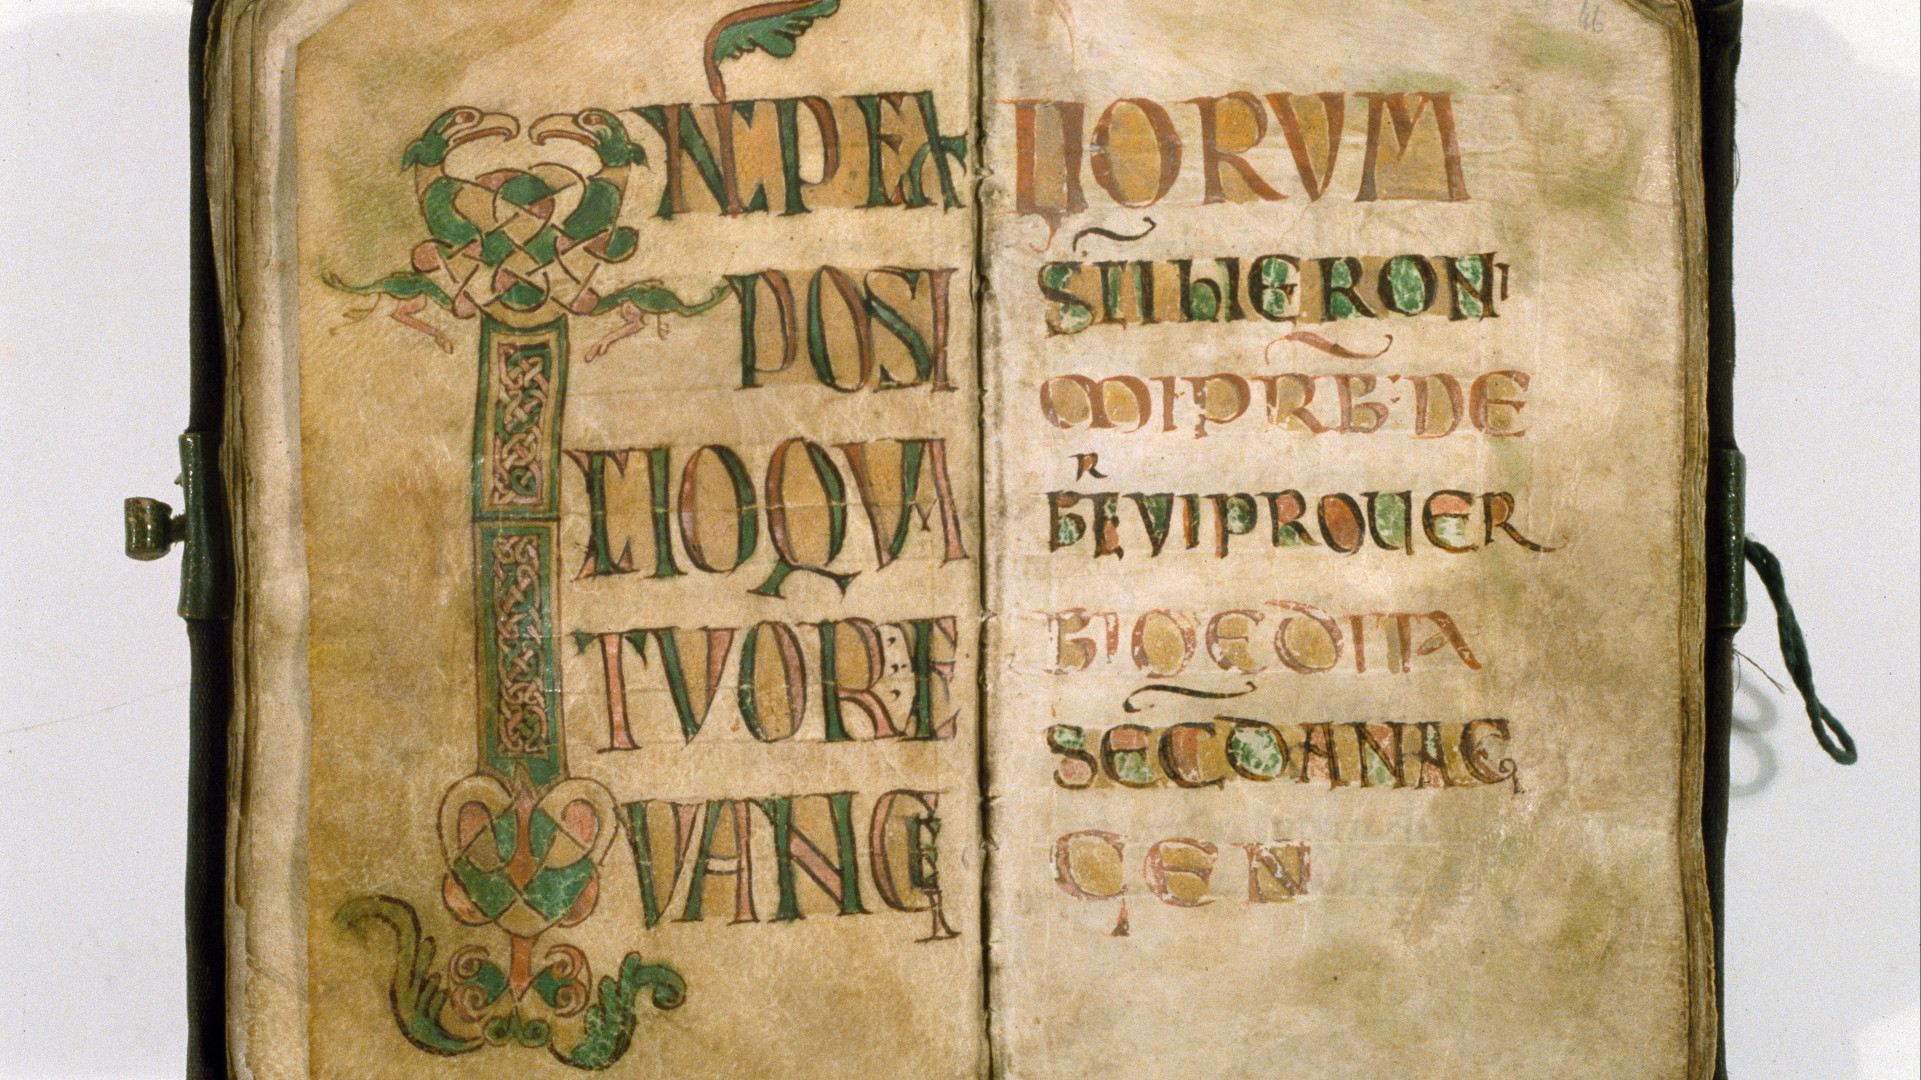 46
INCPEX
POSI
TIOQVA
TVORE
VANGE
LIORVM
SCI hIERONI
MIPRB·DE
BREVIPROVER
BIOEDITA
SECDANAG
GEN